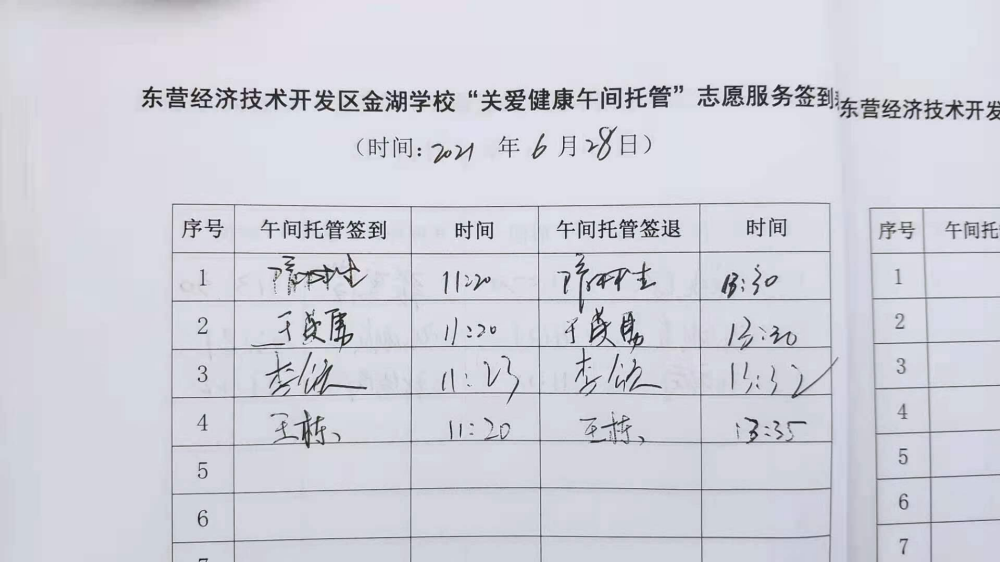 东营经济技术开发区金湖学校“关爱健康午间托管”志愿服务签到
（时间：2021 年 6 月 28日）
序号 午间托管签到 时间 午间托管签退 时间
1 11:20 13:30
2 于英勇 11:20 于英勇 13:30
3 李欣 11:23 李欣 13:32
4 王栋 11:20 王栋 13:35
5
6
7
东营经济技术开发
序号 午间托
1
2
3
4
5
6
7